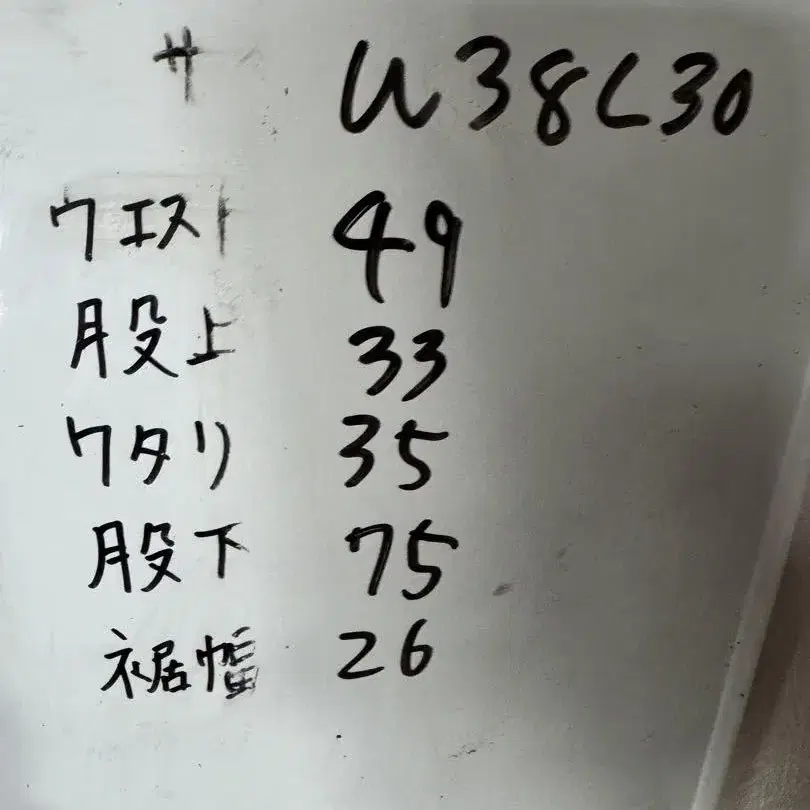 サ W38L30
ウエスト 49
股上 33
ワタリ 35
股下 75
裾幅 26